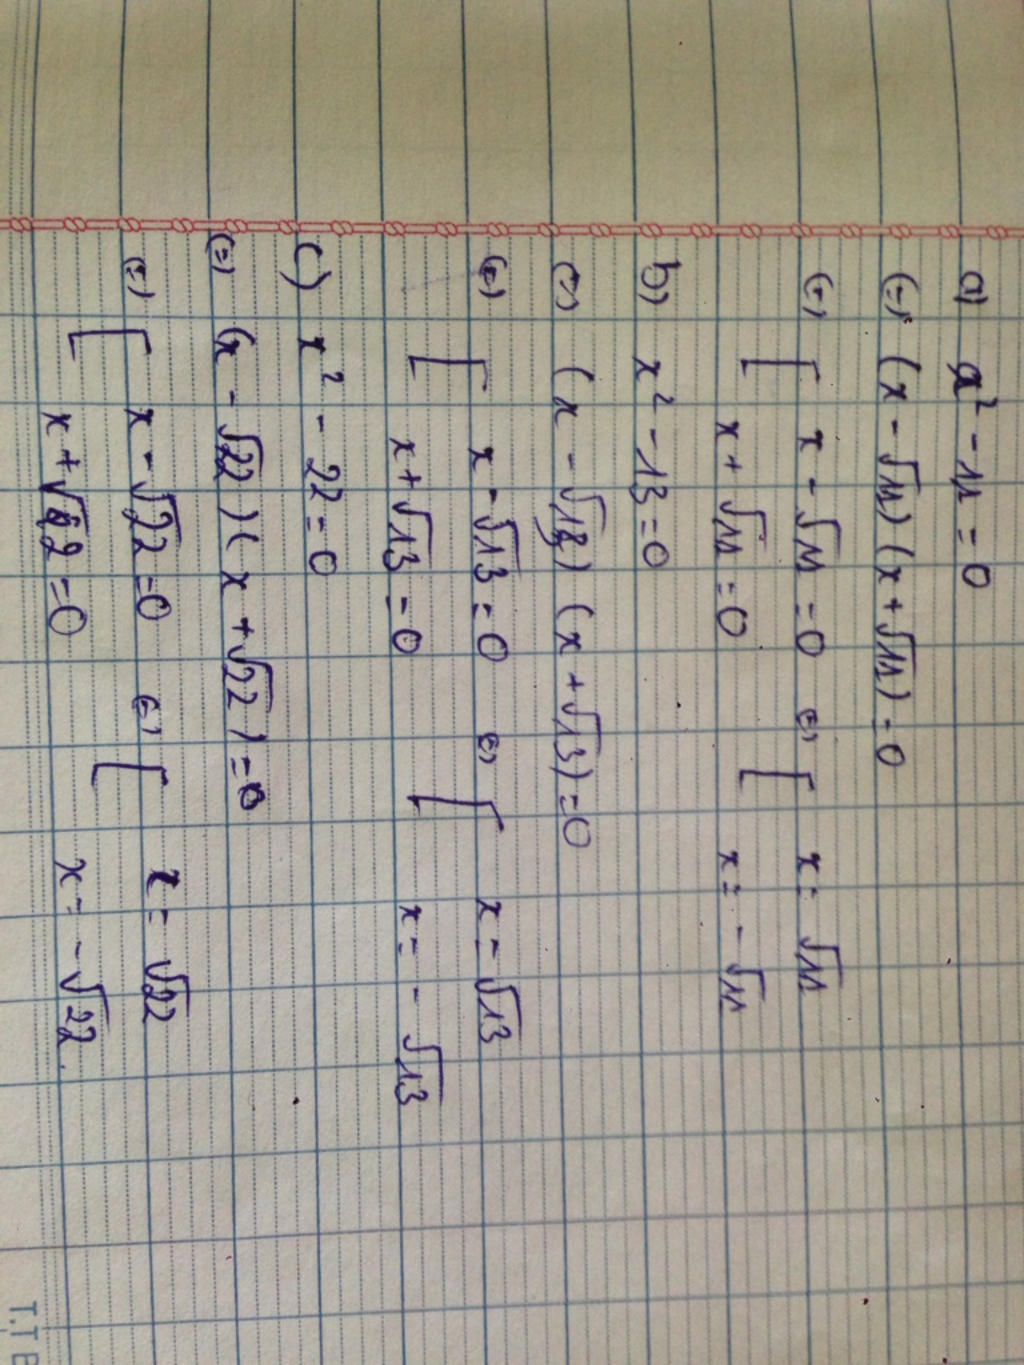 a) x² - 11 = 0
(=) (x - √11) (x + √11) = 0
(=) [ x - √11 = 0 (=) [ x = √11
x + √11 = 0 x = - √11
b) x² - 13 = 0
(=) (x - √13) (x + √13) = 0
(=) [ x - √13 = 0 (=) [ x = √13
x + √13 = 0 x = - √13
c) x² - 22 = 0
(=) (x - √22) (x + √22) = 0
(=) [ x - √22 = 0 (=) [ x = √22
x + √22 = 0 x = - √22